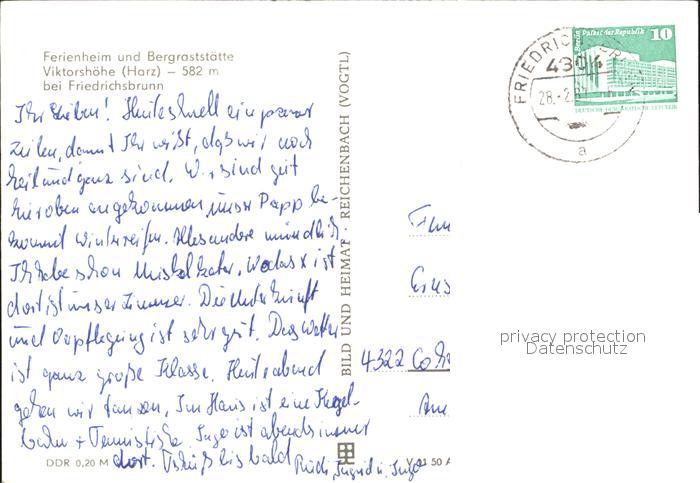 Ferienheim und Bergraststätte
Viktorshöhe (Harz) – 582 m
bei Friedrichsbrunn
Ihr Lieben! Heute schnell ein paar
Zeilen, damit Ihr wißt, daß wir noch
heil und ganz sind. Wir sind gut
hier oben angekommen, unser Papp be-
kommt Winterreifen. Alles andere mündlich.
Ich habe schon Muskelkater. Wo das x ist
dort ist unser Zimmer. Die Unterkunft
und Verpflegung ist sehr gut. Das Wetter
ist ganz große Klasse. Heute abend
gehen wir tanzen. Im Haus ist eine Kegel-
bahn + Tennistische Ingo ist abends immer
dort. Tschüß bis bald
Rudi, Ingrid u. Ingo
DDR 0,20 M
V 11 50
BILD UND HEIMAT REICHENBACH (VOGTL)
Berlin Palast der Republik 10
DEUTSCHE DEMOKRATISCHE REPUBLIK
4304
28.-2.
a
Fam
4322
privacy protection
Datenschutz